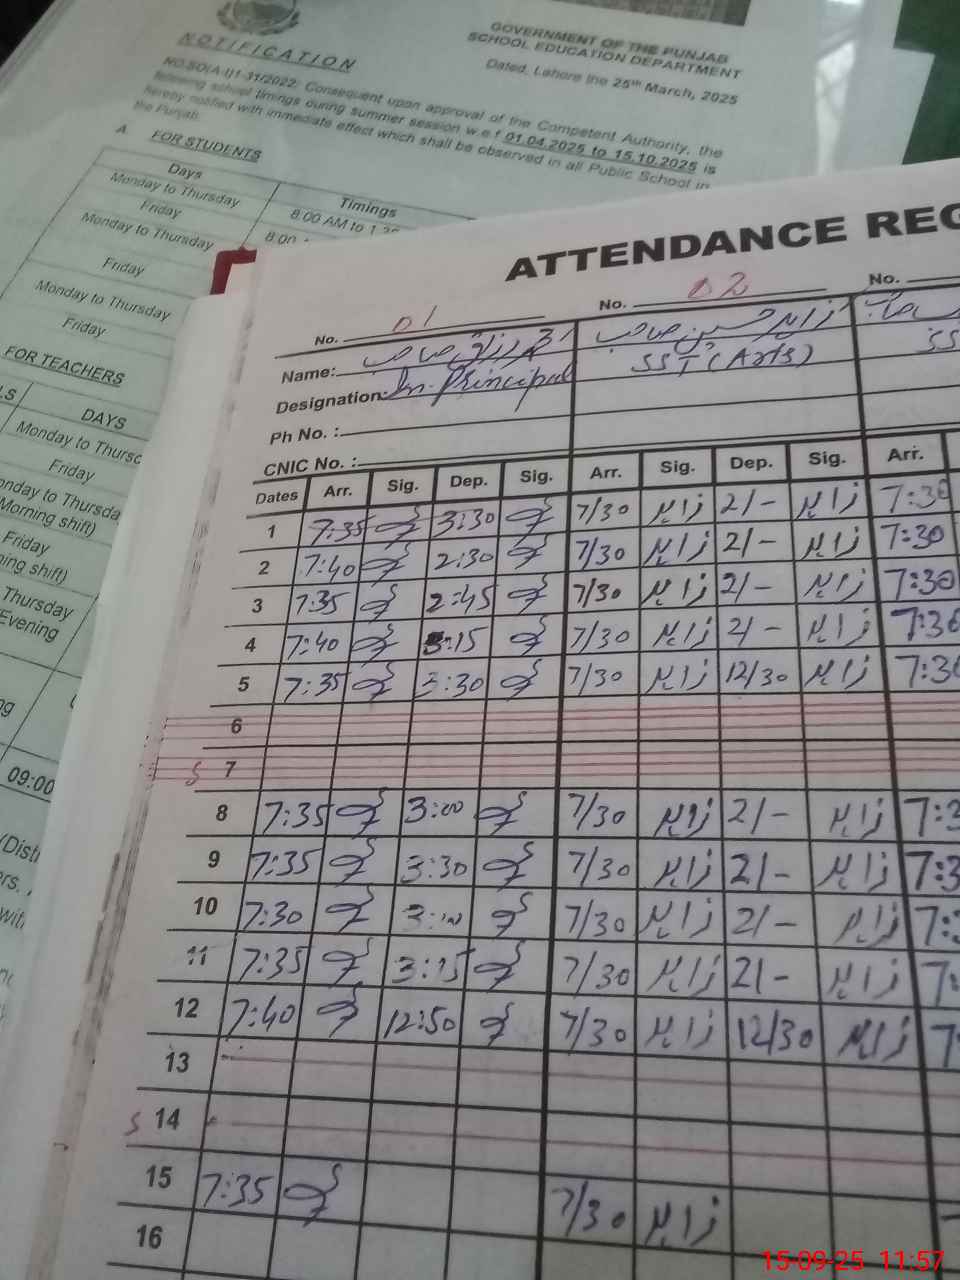 GOVERNMENT OF THE PUNJAB
SCHOOL EDUCATION DEPARTMENT
Dated, Lahore the 25th March, 2025
NOTIFICATION
NO.SO(A-I)1-31/2022: Consequent upon approval of the Competent Authority, the
following school timings during summer session w.e.f 01.04.2025 to 15.10.2025 is
hereby notified with immediate effect which shall be observed in all Public School in
the Punjab.
A. FOR STUDENTS
Days Timings
Monday to Thursday 8:00 AM to
Friday 8:00
Monday to Thursday
Friday
Monday to Thursday
Friday
FOR TEACHERS
DAYS
Monday to Thursd
Friday
Monday to Thursda
Morning shift)
Friday
Thursday
Evening
09:00
ATTENDANCE REG
No. 01 No. 02 No.
Name: صاحب زاہد حسین صاحب
Designation: In-Principal SST (Arts) SS
Ph No. :
CNIC No. :
Dates Arr. Sig. Dep. Sig. Arr. Sig. Dep. Sig. Arr.
1 7:35 3:30 7/30 زاہد 2/- زاہد 7:30
2 7:40 2:30 7/30 زاہد 2/- زاہد 7:30
3 7:35 2:45 7/30 زاہد 2/- زاہد 7:30
4 7:40 3:15 7/30 زاہد 2/- زاہد 7:30
5 7:35 3:30 7/30 زاہد 12/30 زاہد 7:30
6
S 7
8 7:35 3:00 7/30 زاہد 2/- زاہد 7:3
9 7:35 3:30 7/30 زاہد 2/- زاہد 7:3
10 7:30 3:10 7/30 زاہد 2/- زاہد 7:
11 7:35 3:15 7/30 زاہد 2/- زاہد 7:
12 7:40 12:50 7/30 زاہد 12/30 زاہد 7
13
S 14
15 7:35 7/30 زاہد
16
15-09-25 11:57